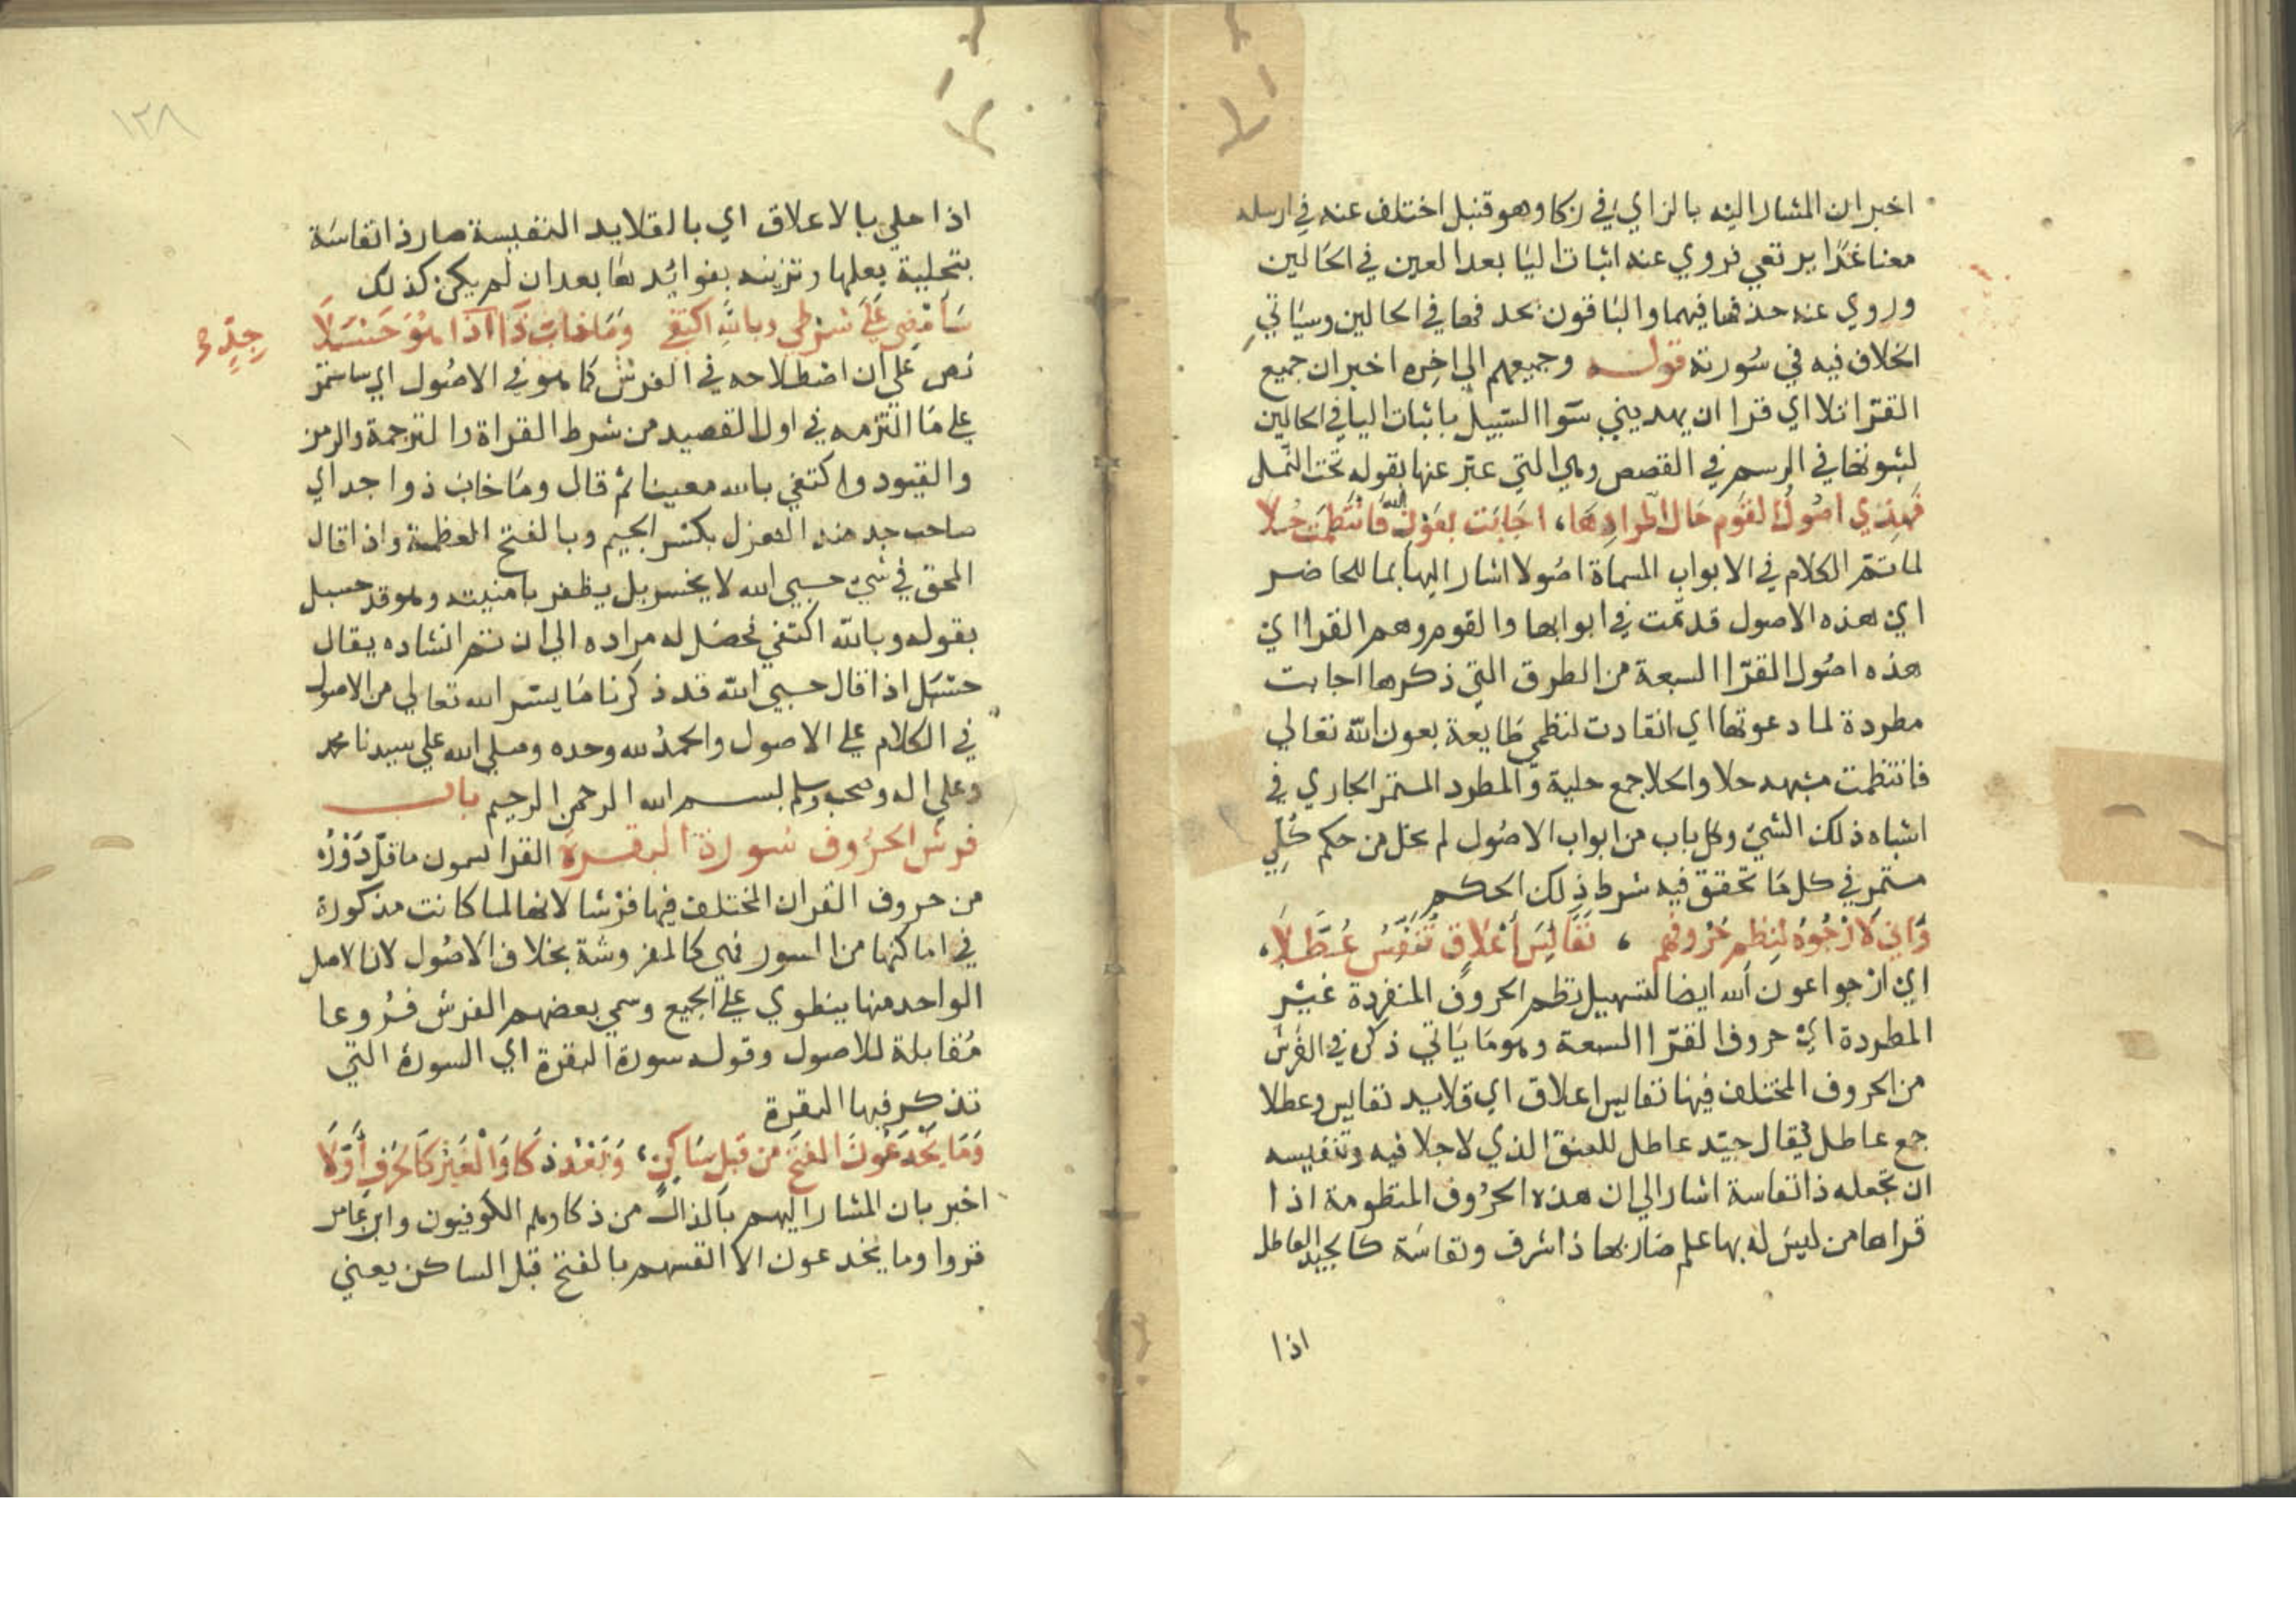 اخبر ان المشار اليه بالزاي في زكا وهو قنبل اختلف عنه في ارسله
معنا غدا يرتعي فروي عنه اثبات اليا بعد العين في الحالين
وروي عنه حذفها فيهما والباقون بحذفها في الحالين وسياتي
الخلاف فيه في سورته قوله وجميعهم الي اخره اخبر ان جميع
القرا تلا اي قرا ان يهديني سوا السبيل باثبات اليا في الحالين
لثبوتها في الرسم في القصص وهي التي عبر عنها بقوله تحت النمل
فَهَذِي اصُولُ القَوْمِ حَالَ اطِّرادِهَا، اجَابَت بِعَوْنِ اللهِ فَانْتَظَمَتْ حُلَا
لما تمم الكلام في الابواب المسماة اصولا اشار اليها بما للحاضر
اي هذه الاصول قد تمت في ابوابها والقوم وهم القرا اي
هذه اصول القرا السبعة من الطرق التي ذكرها اجابت
مطردة لما دعوتها اي انقادت لنظمي طايعة بعون الله تعالي
فانتظمت مشبهه حلا والحلا جمع حلية والمطرد المستمر الجاري في
اشباه ذلك الشي وكل باب من ابواب الاصول لم يخل من حكم كلي
مستمر في كل ما تحقق فيه شرط ذلك الحكم
وَاني لَارْجُوهُ لِنَظمِ حُرُوفِهم ، نَفَائِسَ أَعْلَاقٍ تُنَفِّسُ عُطَّلَا،
اي ارجوا عون الله ايضا لتسهيل نظم الحروف المنفردة غير
المطردة اي حروف القرا السبعة وهو ما ياتي ذكره في الفرش
من الحروف المختلف فيها نفايس اعلاق اي قلايد نفايس وعطلا
جمع عاطل يقال جيد عاطل للعنق الذي لا حلا فيه وتنفيسه
ان تجعله ذا نفاسة اشار الي ان هذه الحروف المنظومة اذا
قراها من ليس له بها علم صار بها ذا شرف ونفاسة كالجيد العاطل
اذا
١٣٨
اذا حلي بالاعلاق اي بالقلايد النفيسة صار ذا نفاسة
بتحلية بعلمها وتزينه بفوائدها بعد ان لم يكن كذلك
سَأَمْضِي عَلَى شَرْطِي وبِاللهِ اكتَفِي وَمَا خَابَ ذَا اذَا هُوَ حَسْبَلَا
جِدٍّ
نص علي ان اصطلاحه في الفرش كما هو في الاصول اي ساستمر
علي ما التزمه في اول القصيد من شرط القراة والترجمة والرمز
والقيود واكتفي بالله معينا ثم قال وما خاب ذوا جد اي
صاحب جد ضد الهزل بكسر الجيم وبالفتح العظمة واذا قال
المحق في شي حسبي الله لا يخسر بل يظفر بامنيته وهو قد حسبل
بقوله وبالله اكتفي فحصل له مراده الي ان تم انشاده يقال
حسبل اذا قال حسبي الله قد ذكرنا ما يسر الله تعالي من الاصول
في الكلام علي الاصول والحمد لله وحده وصلي الله علي سيدنا محمد
وعلي اله وصحبه وسلم بسم الله الرحمن الرحيم باب
فرش الحروف سورة البقرة القرا يسمون ما قل دَوْرُه
من حروف القران المختلف فيها فرشا لانها لما كانت مذكورة
في اماكنها من السور فهي كالمفروشة بخلاف الاصول لان الاصل
الواحد منها ينطوي علي الجميع وسمي بعضهم الفرش فروعا
مقابلة للاصول وقوله سورة البقرة اي السورة التي
تذكر فيها البقرة
وَمَا يَخْدَعُونَ الفَتْحَ مِن قَبْلِ سَاكِنٍ، وَبَعْدُ ذَكَا وَالْغَيْرُ كَالحَرْفِ أَوَّلَا
اخبر بان المشار اليهم بالذال من ذكا وهم الكوفيون وابن عامر
قروا وما يخدعون الا انفسهم بالفتح قبل الساكن يعني